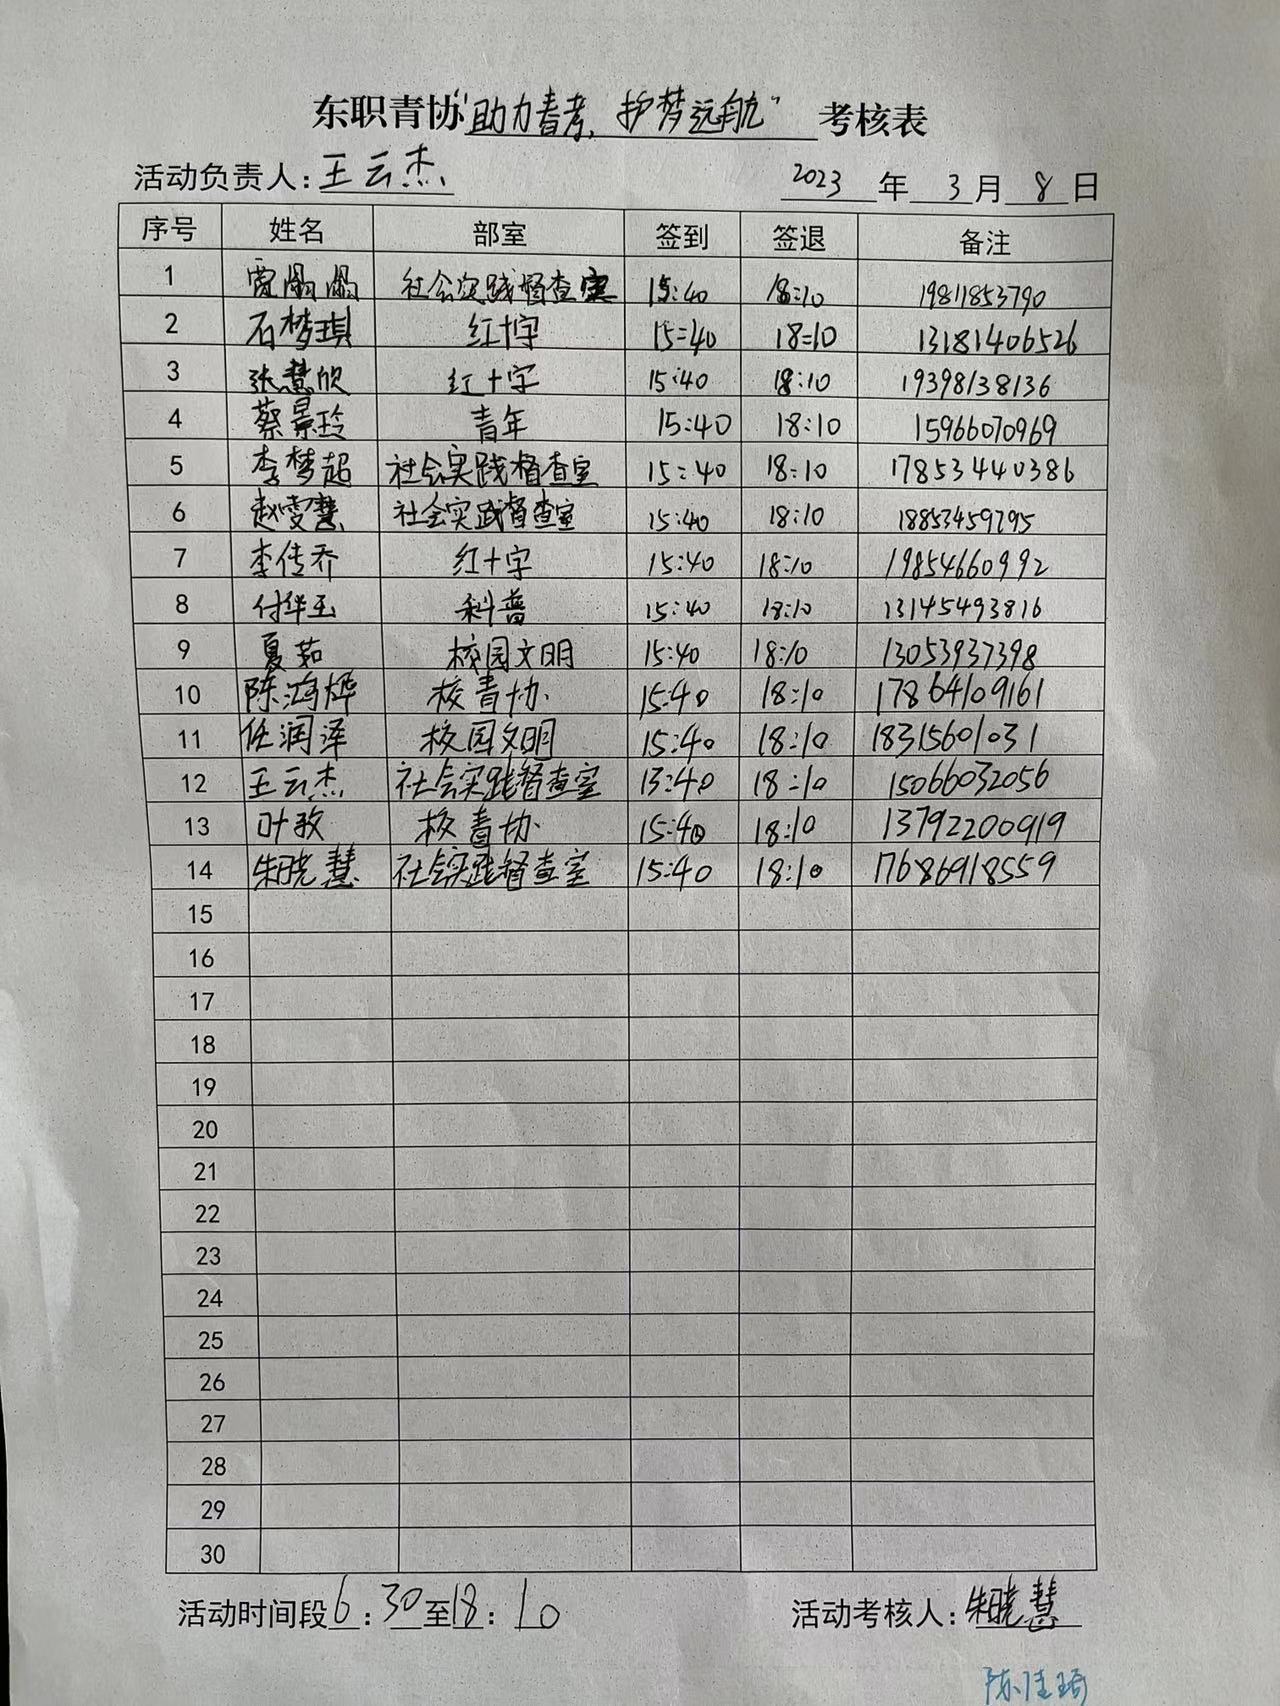 东职青协“助力春考，护梦远航” 考核表
活动负责人：王云杰 2023 年 3 月 8 日
序号 姓名 部室 签到 签退 备注
1 贾 社会实践督查室 15:40 18:10 19811853790
2 石梦琪 红十字 15:40 18:10 13181406526
3 张慧欣 红十字 15:40 18:10 19398138136
4 蔡景玲 青年 15:40 18:10 15966070969
5 李梦超 社会实践督查室 15:40 18:10 17853440386
6 赵雯慧 社会实践督查室 15:40 18:10 18853459295
7 李传乔 红十字 15:40 18:10 19854660992
8 付华玉 科普 15:40 18:10 13145493816
9 夏茹 校园文明 15:40 18:10 13053937398
10 陈鸿烨 校青协 15:40 18:10 17864109161
11 任润泽 校园文明 15:40 18:10 18315601031
12 王云杰 社会实践督查室 15:40 18:10 15066032056
13 叶孜 校青协 15:40 18:10 13792200919
14 朱晓慧 社会实践督查室 15:40 18:10 17686918559
15
16
17
18
19
20
21
22
23
24
25
26
27
28
29
30
活动时间段 6：30至18：10 活动考核人：朱晓慧
陈佳琦